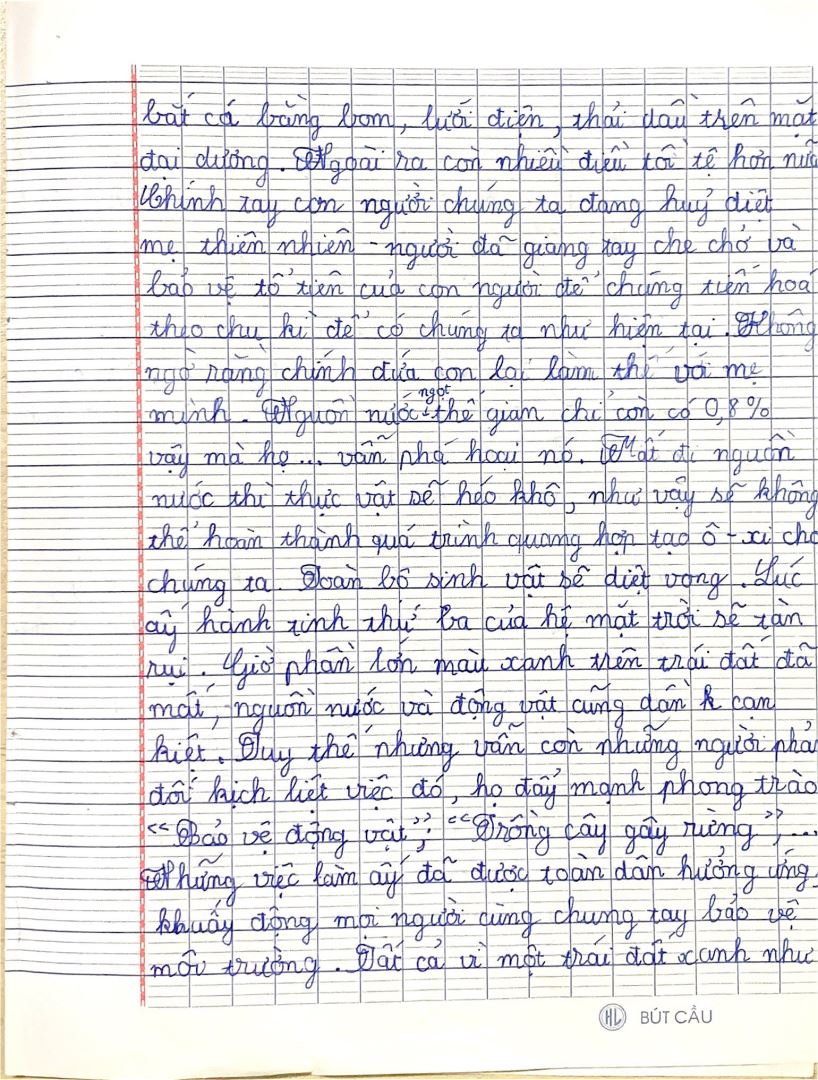 bắt cá bằng bom, lưới điện, thải dầu trên mặt
đại dương. Ngoài ra còn nhiều điều tồi tệ hơn nữa
Chính tay con người chúng ta đang huỷ diệt
mẹ thiên nhiên - người đã giang tay che chở và
bảo vệ tổ tiên của con người để chúng tiến hoá
theo chu kì để có chúng ta như hiện tại. Không
ngờ rằng chính đứa con lại làm thế với mẹ
mình. Nguồn nước ngọt thế gian chỉ còn có 0,8%
vậy mà họ... vẫn phá hoại nó. Mất đi nguồn
nước thì thực vật sẽ héo khô, như vậy sẽ không
thể hoàn thành quá trình quang hợp tạo ô-xi cho
chúng ta. Toàn bộ sinh vật sẽ diệt vong. Lúc
ấy hành tinh thứ ba của hệ mặt trời sẽ tàn
rụi. Giờ phần lớn màu xanh trên trái đất đã
mất, nguồn nước và động vật cũng dần k cạn
kiệt. Tuy thế nhưng vẫn còn những người phả
đối kịch liệt việc đó, họ đẩy mạnh phong trào
“Bảo vệ động vật”; “Trồng cây gây rừng”,...
Những việc làm ấy đã được toàn dân hưởng ứng,
khuấy động mọi người cùng chung tay bảo vệ
môi trường. Tất cả vì một trái đất xanh như
HL BÚT CẦU